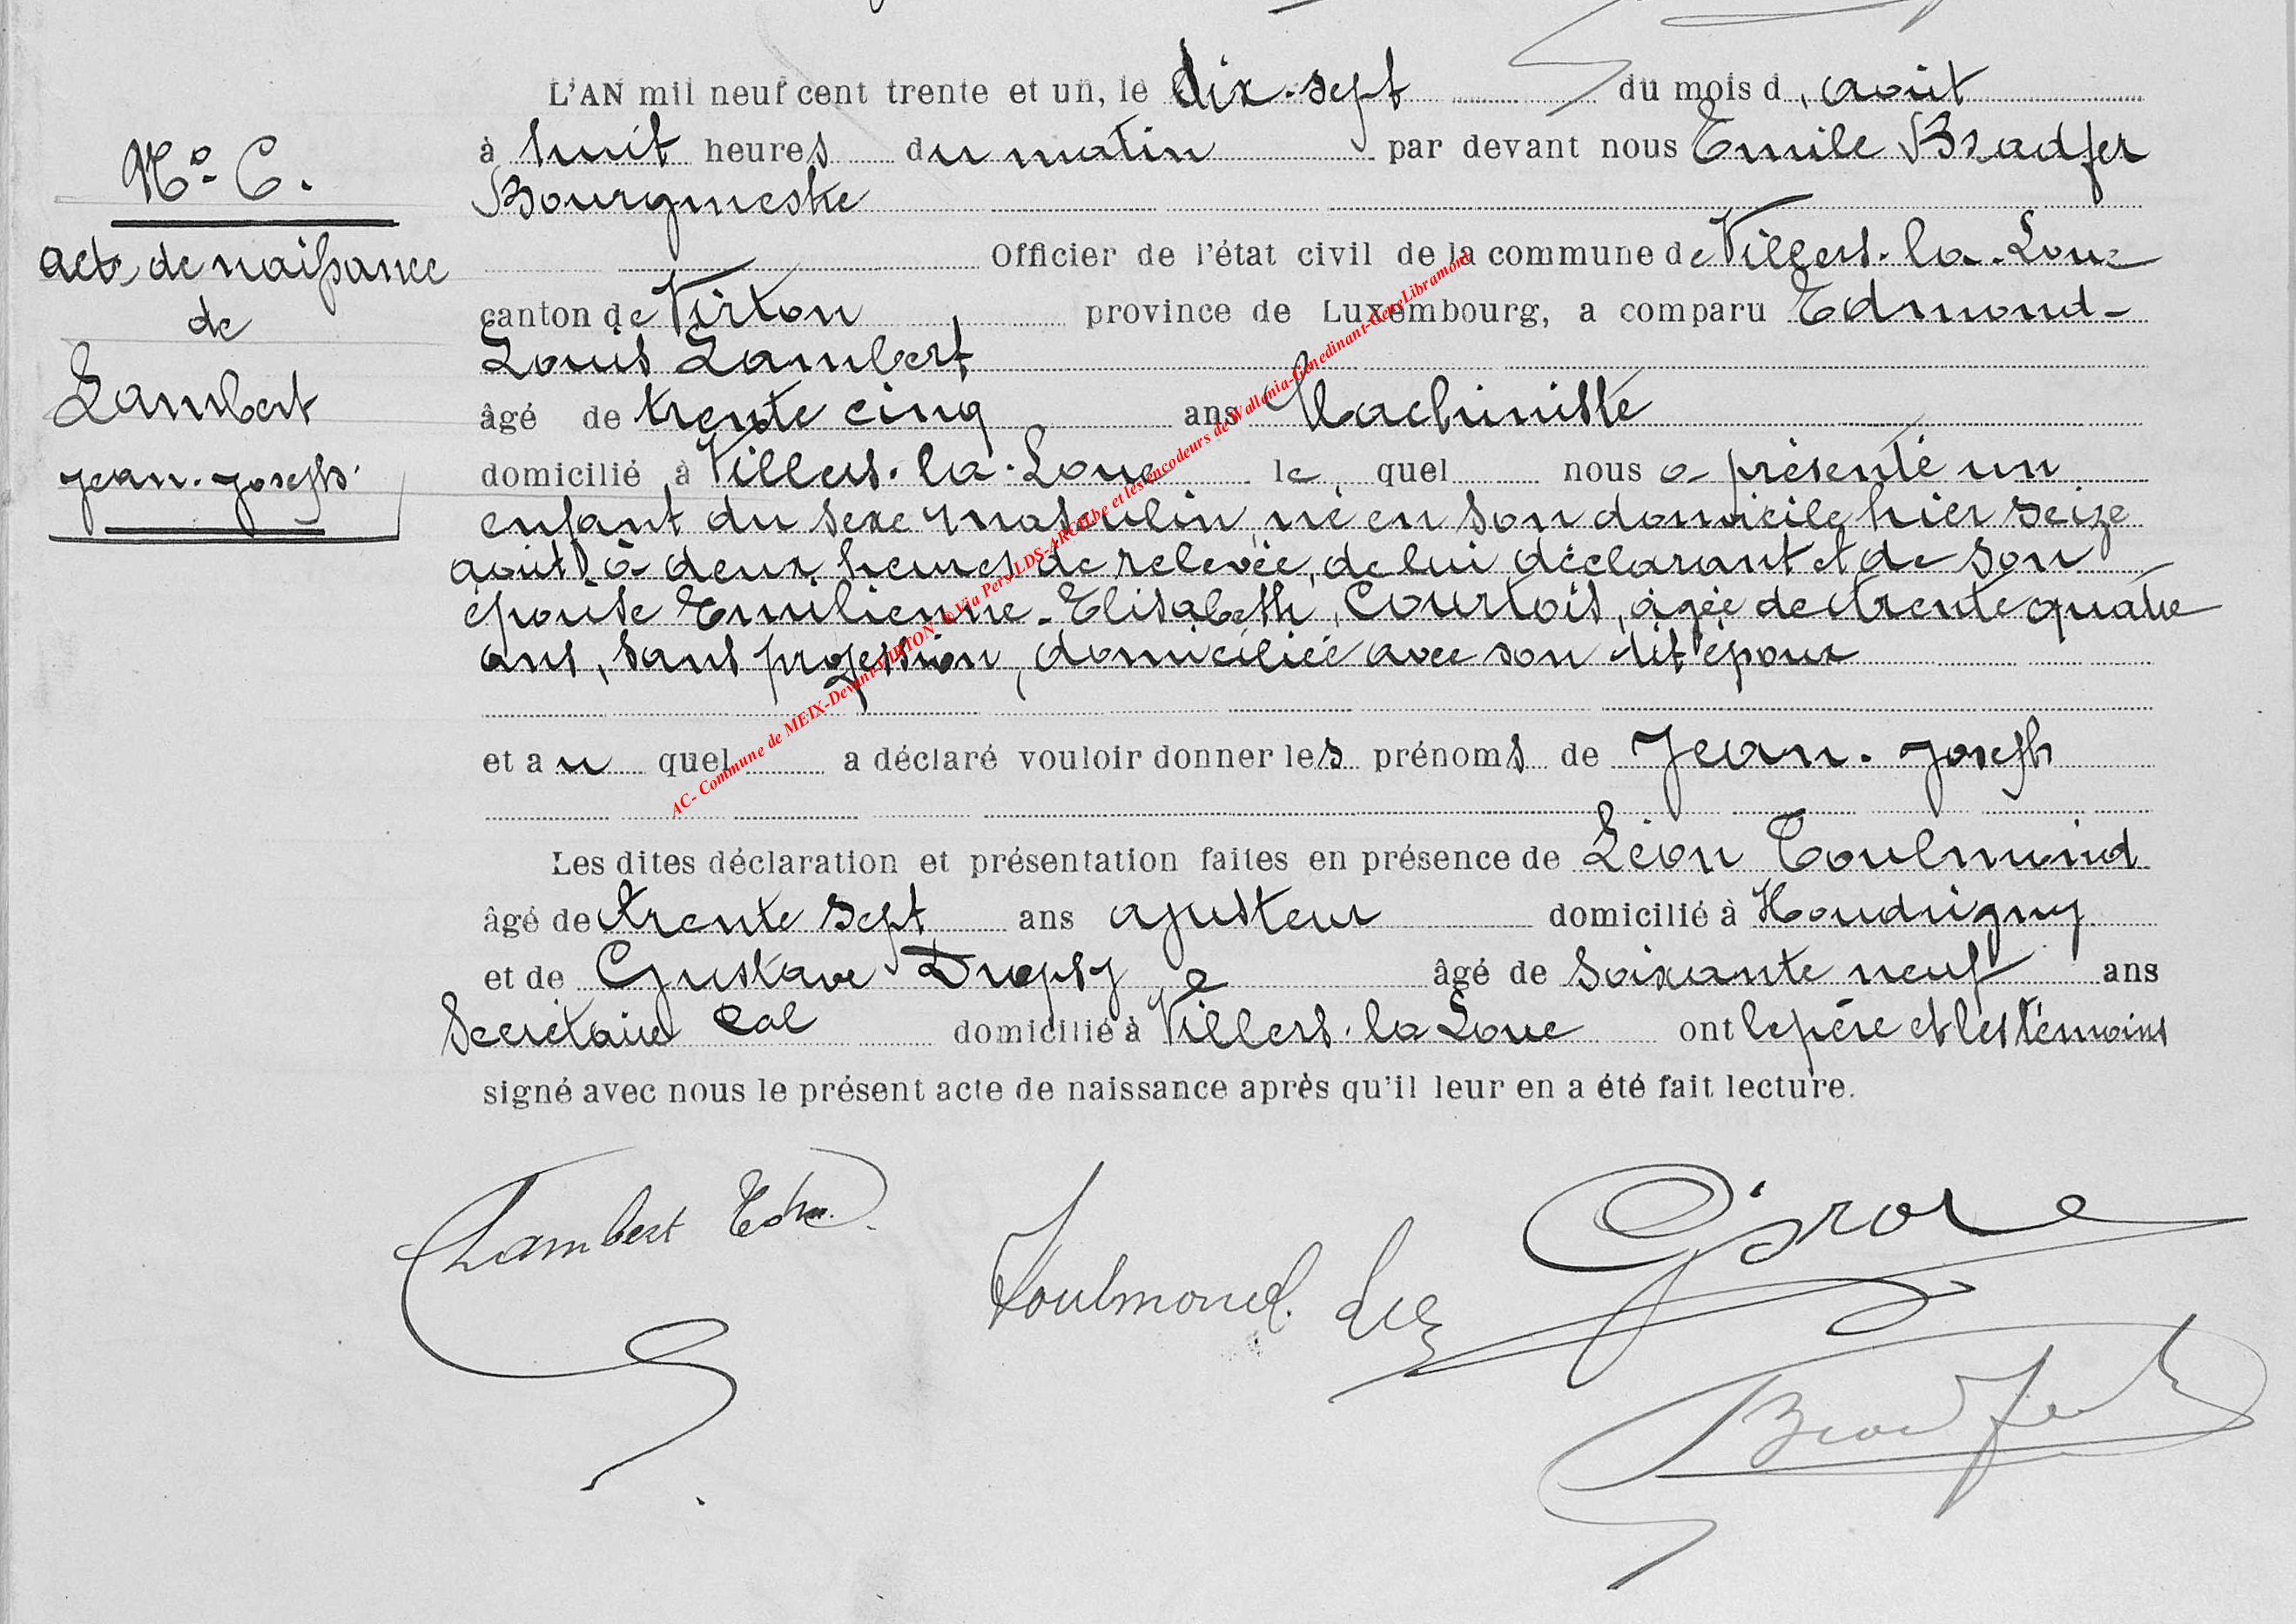 L'AN mil neuf cent trente et un, le dix-sept du mois d, août
à huit heures du matin par devant nous Emile Bradfer
Bourgmestre
Officier de l'état civil de la commune de Villers-la-Loue
canton de Virton province de Luxembourg, a comparu Edmond-
Louis Lambert
âgé de trente cinq ans Machiniste
domicilié à Villers-la-Loue le quel nous a présenté un
enfant du sexe masculin, né en son domicile hier seize
août à deux heures de relevée, de lui déclarant et de son
épouse Emilienne-Elisabeth Courtois, âgée de trente quatre
ans, sans profession, domiciliée avec son dit époux
et au quel a déclaré vouloir donner les prénoms de Jean-Joseph
Les dites déclaration et présentation faites en présence de Léon
âgé de trente sept ans ajusteur domicilié à Houdrigny
et de Gustave Dropsy âgé de soixante neuf ans
Secrétaire cal domicilié à Villers-la Loue ont le père et les témoins
signé avec nous le présent acte de naissance après qu'il leur en a été fait lecture.
N°
acte de naissance
de
Lambert
Jean-Joseph
Lambert Edm.
Toulmond
Bradfer
AC- Commune de MEIX-Devant-VIRTON © Via Perv LDS-ARCH.be et les encodeurs de Wallonia-Genedinant-GeneLibramont